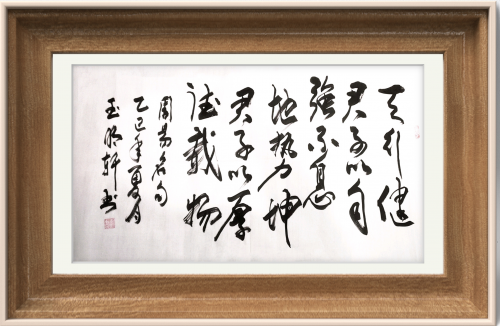 天行健
君子以自
强不息
地势坤
君子以厚
德载物
周易名句
乙巳年夏月
玉明轩书